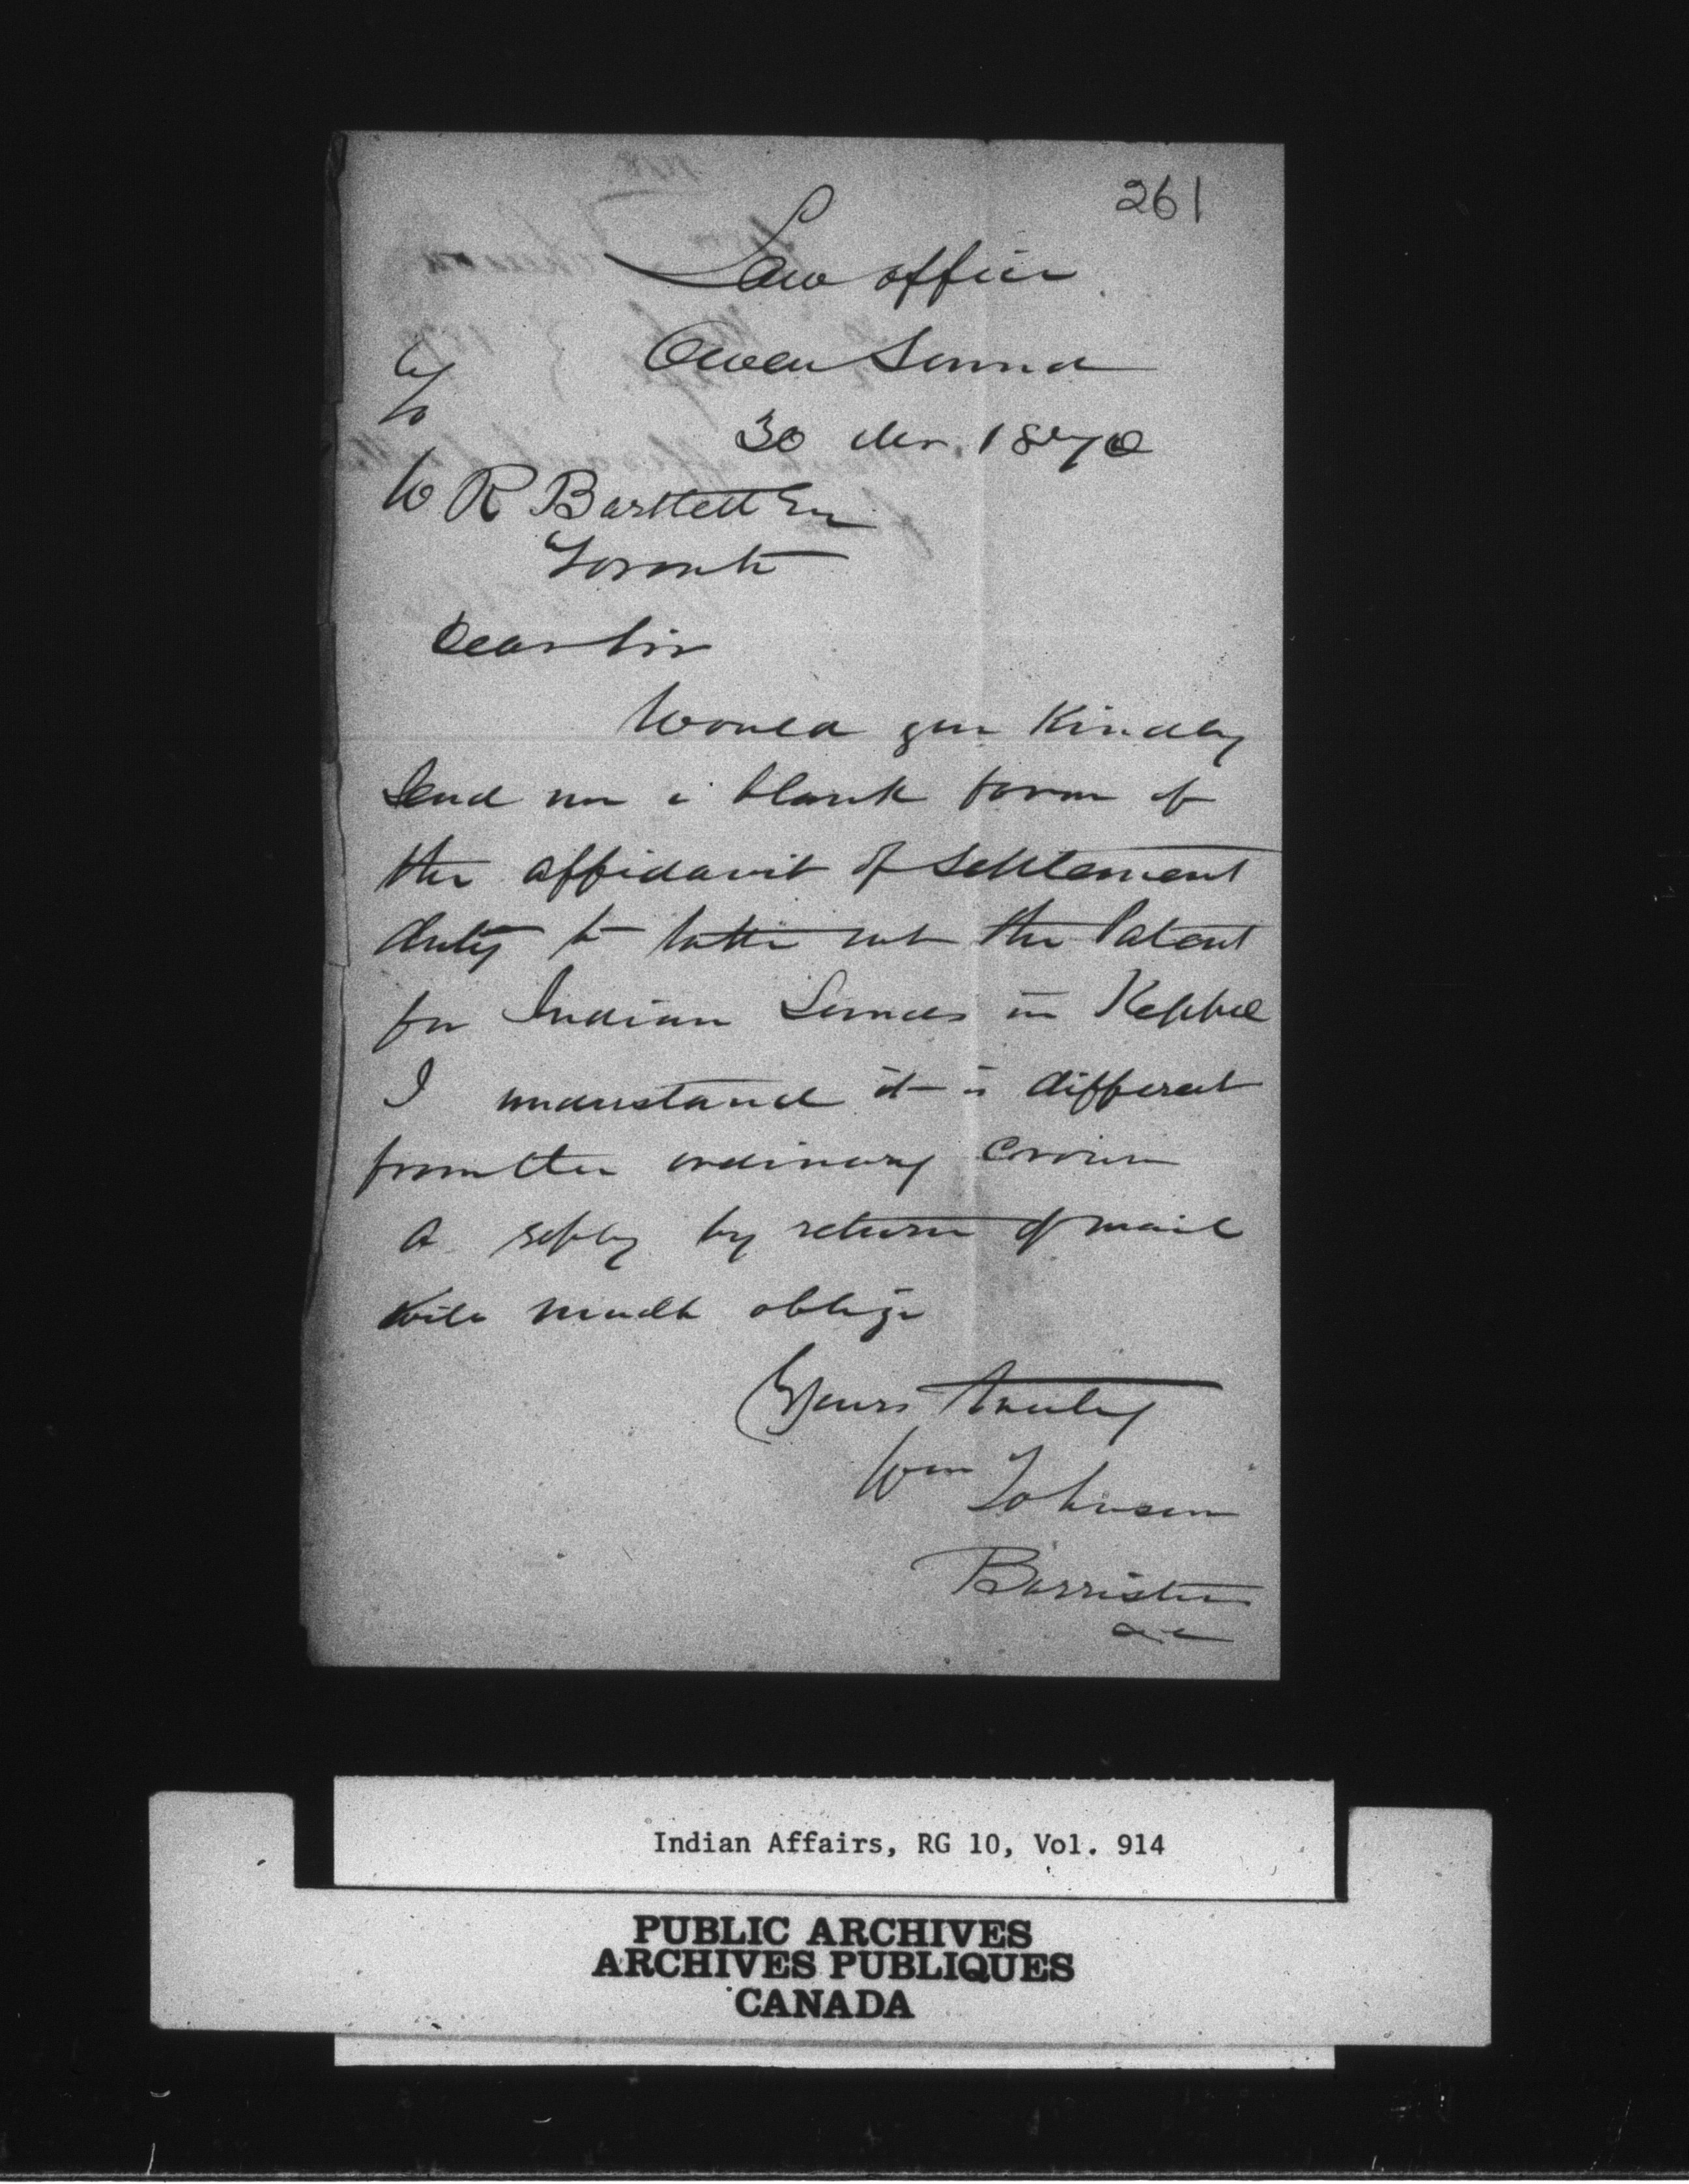 261
Law office
Owen Sound
30 Mar. 1870
W R Bartlett Esq
Toronto
Dear Sir
Would you Kindly
send me a blank form of
the affidavit of settlement
duty to take out the Patent
for Indian Lands in Keppel
I understand it is different
from the ordinary Crown
A reply by return of mail
will much oblige
Yours truly
Wm Johnson
Barrister
&c
Indian Affairs, RG 10, Vol. 914
PUBLIC ARCHIVES
ARCHIVES PUBLIQUES
CANADA